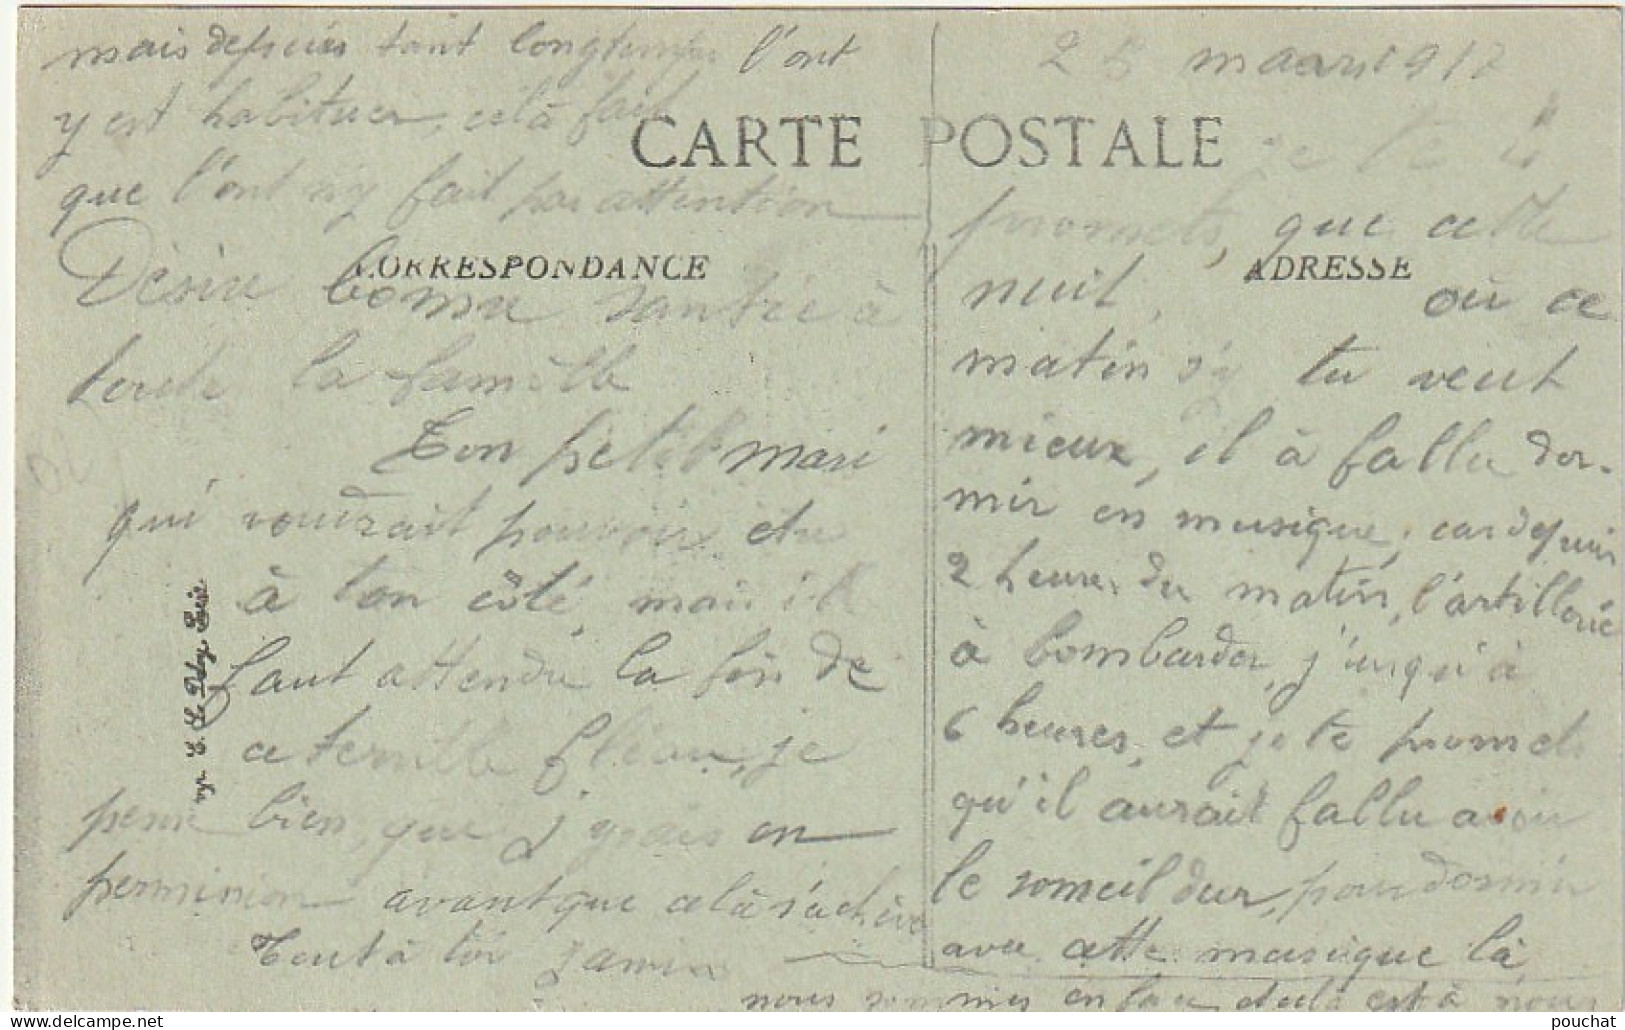 25 mars 1917
CARTE POSTALE
ADRESSE
je te
promets, que cette
nuit, où ce
matin s'y tu veut
mieux, il à fallu dor-
mir en musique, car depuis
2 heures du matin, l'artillerie
à bombarder, j'usqu'à
6 heures, et je te promets
qu'il aurait fallu avoir
le someil dur, pour dormir
avec cette musique là
nous sommes en est à nous
mais depuis tant longtemps l'ont
y est habituer, celà fait
que l'ont n'y fait pas attention
CORRESPONDANCE
Désire bonne santée à
toute la famille
Ton petit mari
qui voudrait pouvoir etre
à ton côté, mais il
faut attendre la fin de
ce terrible fléau, je
pense bien, que j'yrais en
permission avant que celà s'achève
Tout à toi
E. Le Deley, Paris
pouchat